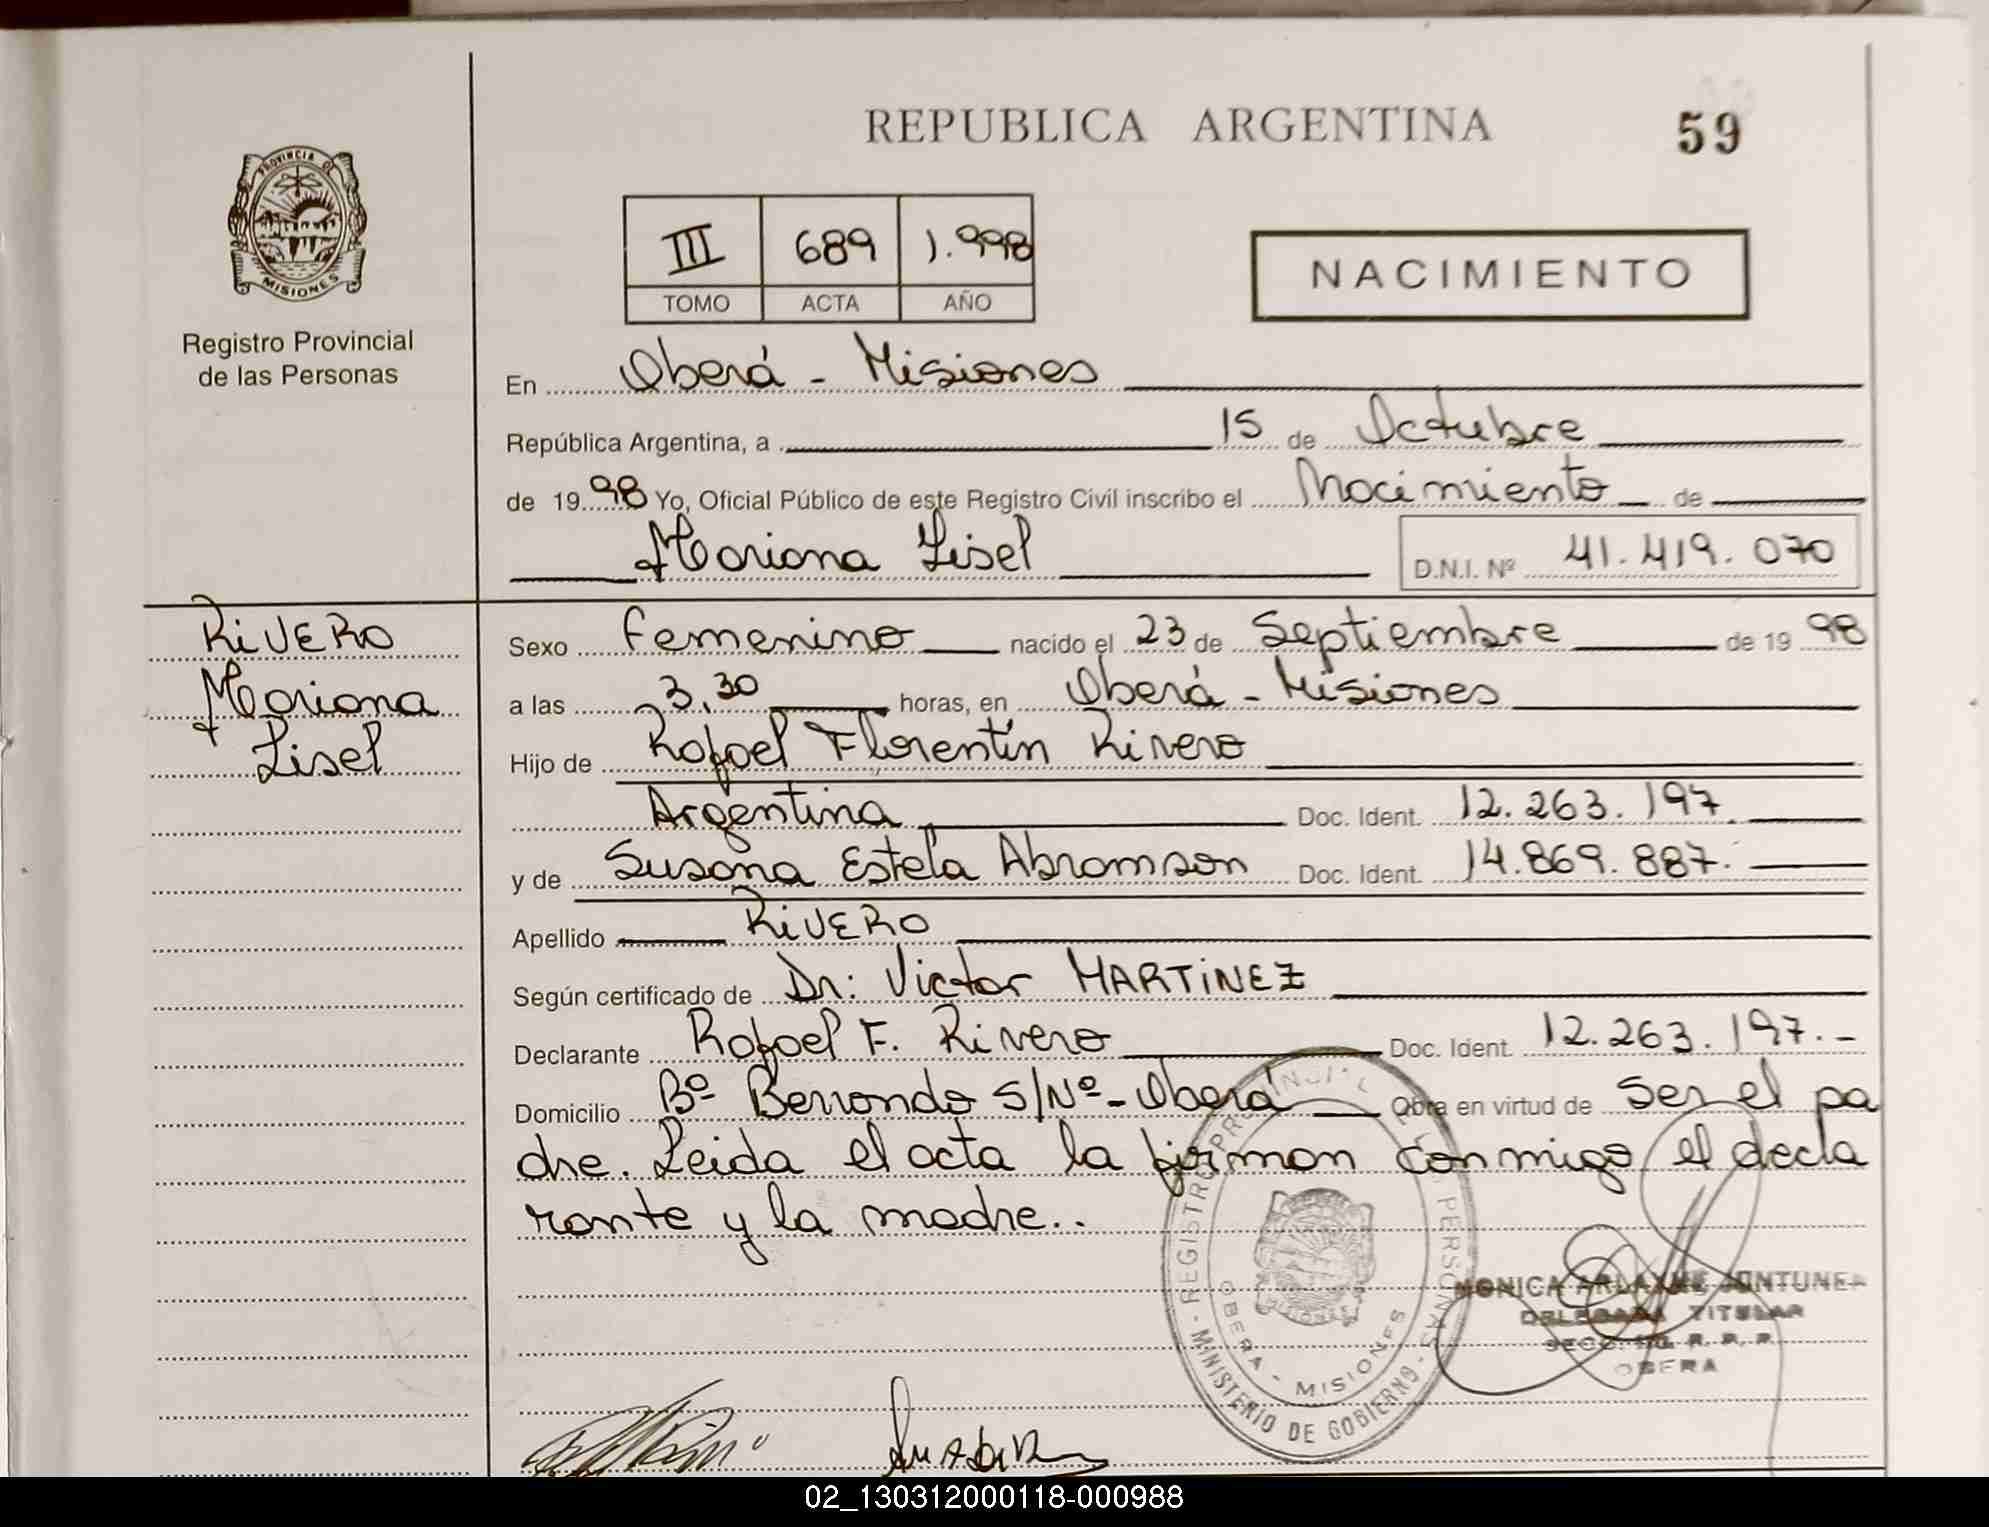 REPUBLICA ARGENTINA
59
PROVINCIA DE
MISIONES
Registro Provincial
de las Personas
III 689 1.998
TOMO ACTA AÑO
NACIMIENTO
En Oberá - Misiones
República Argentina, a 15 de Octubre
de 1998 Yo, Oficial Público de este Registro Civil inscribo el Nacimiento de
Mariana Lisel
D.N.I. Nº 41.419.070
RIVERO
Mariana
Lisel
Sexo Femenino nacido el 23 de Septiembre de 1998
a las 3,30 horas, en Oberá - Misiones
Hijo de Rafael Florentín Rivero
Argentina Doc. Ident. 12.263.197.
y de Susana Estela Abramson Doc. Ident. 14.869.887.
Apellido RIVERO
Según certificado de Dr: Victor MARTINEZ
Declarante Rafael F. Rivero Doc. Ident. 12.263.197.-
Domicilio Bº Berrondo S/Nº - Oberá Obra en virtud de ser el pa
dre. Leida el acta la firman conmigo el decla
rante y la madre..
REGISTRO PROVINCIAL DE LAS PERSONAS
OBERA - MISIONES
MINISTERIO DE GOBIERNO
MONICA
DELEGADA TITULAR
R. P. P.
OBERA
02_130312000118-000988